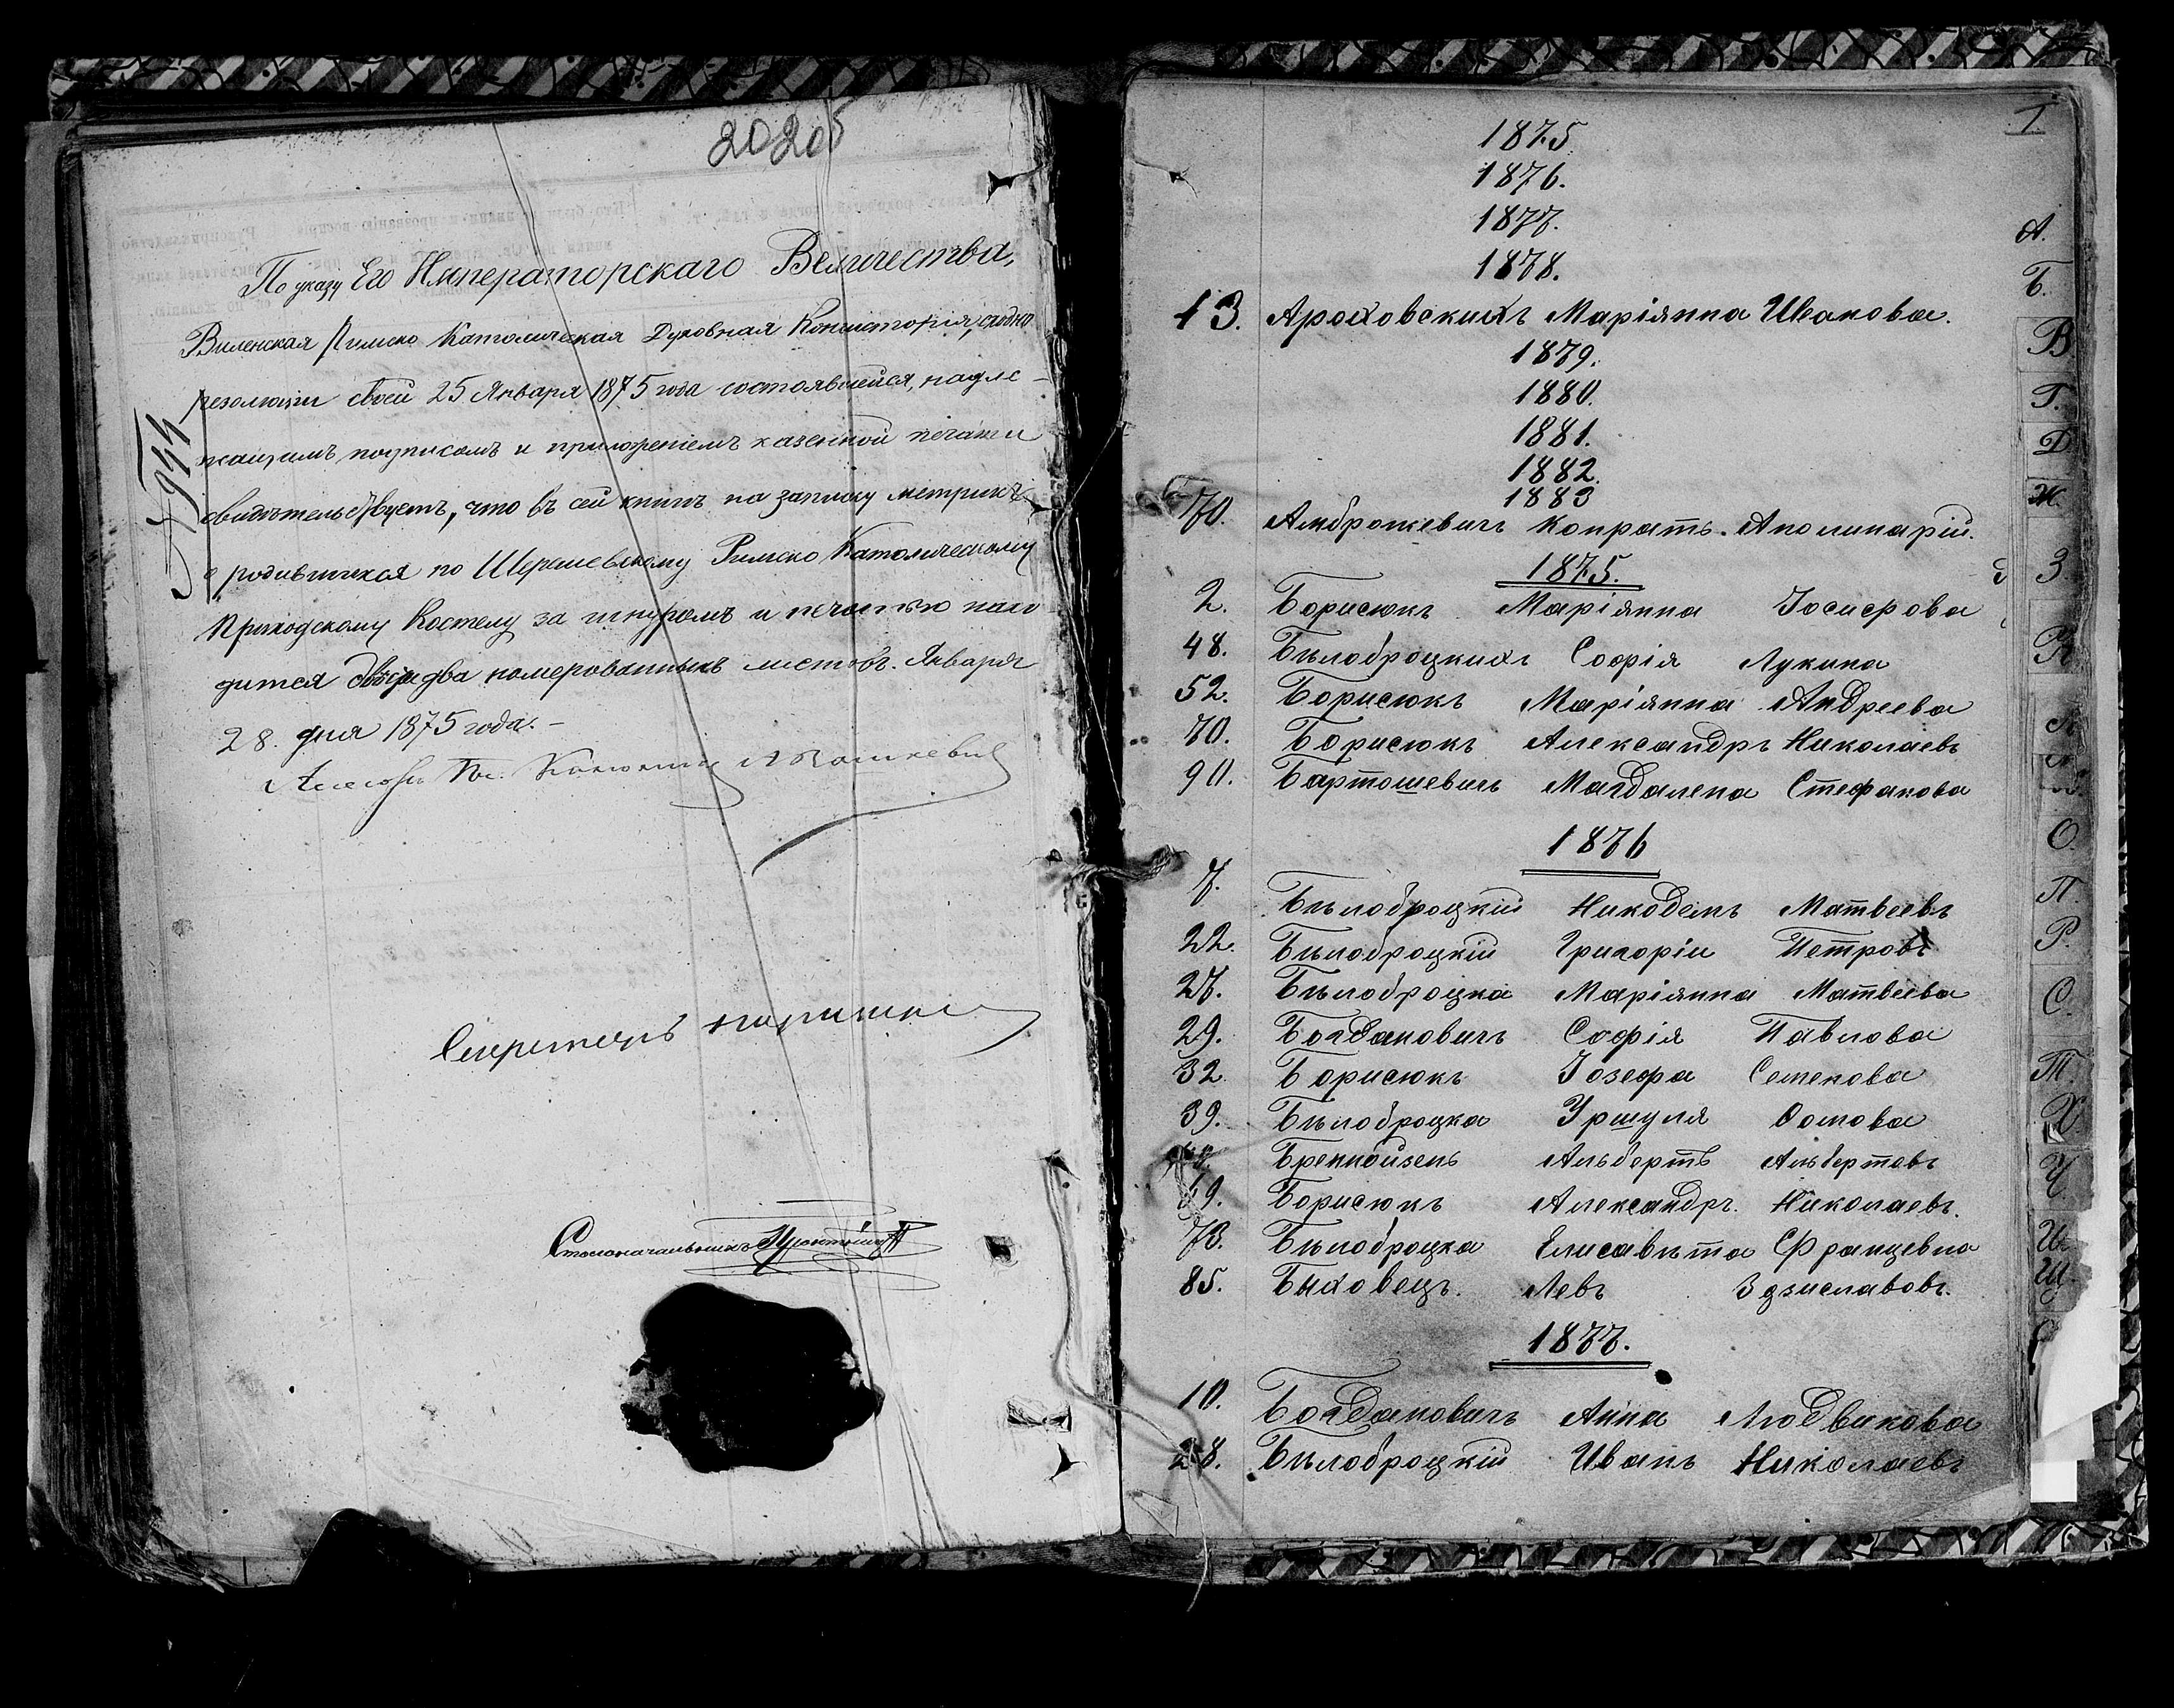 2020
По указу Его Императорскаго Величества,
Виленская Римско Католическая Духовная Консисторія, сходно
резолюціи своей 25 Января 1875 года состоявшейся, надле-
жащимъ подписомъ и приложеніемъ казенной печати
свидѣтельствуетъ, что въ сей книгѣ на записку метрикъ
о родившихся по Шерешевскому Римско Католическому
Приходскому Костелу за шнуромъ и печатью нахо
дится двѣсти два номерованныхъ листовъ. Января
28. дня 1875 года.-
Секретарь
Столоначальникъ
1
1875
1876.
1877.
1878.
13. Араховскихъ Маріянна Иванова.
1879.
1880.
1881.
1882.
1883
70. Амброжевичъ Конратъ-Аполинарій.
1875.
2. Борисюкъ Маріянна Іосифова
48. Бѣлоброцкихъ Софія Лукина
52. Борисюкъ Маріянна Андреева
70. Борисюкъ Александръ Николаевъ
90. Бартошевичъ Магдалена Стефанова
1876
7. Бѣлоброцкій Никодемъ Матвеевъ
22. Бѣлоброцкій Григоріи Петровъ
27. Бѣлоброцка Маріянна Матвеева
29. Богдановичъ Софія Павлова
32 Борисюкъ Іозефа Семенова
39. Бѣлоброцка Уршуля Фомова
Бреннойзенъ Альбертъ Альбертовъ
59. Борисюкъ Александръ. Николаевъ.
73. Бѣлоброцка Елисавѣта Францевна
85. Быховецъ. Левъ Здзиславовъ.
1877.
10. Богдановичъ Анна Людвикова
28. Бѣлоброцкій Иванъ Николаевъ
А.
Б.
В
Г.
Д
Ж.
З.
К
Л
О.
П.
Р.
С.
Т.
Х
Ч
Ш
Щ